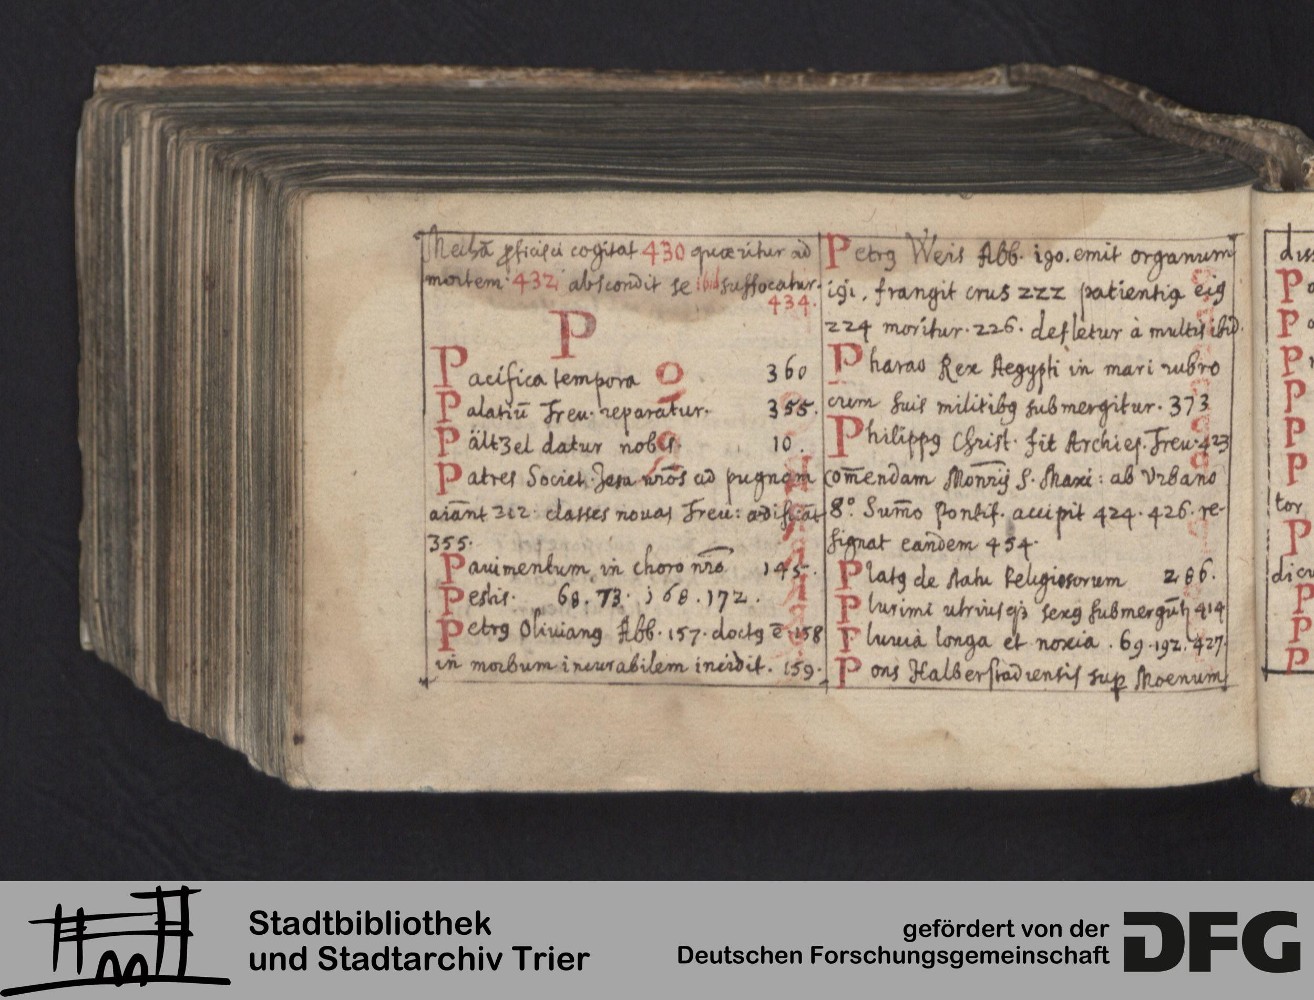 Mecha proficisci cogitat 430 quæritur ad
mortem 432 abscondit se ibid suffocatur.
434.
P
Pacifica tempora 360
Palatiū Treu. reparatur. 355.
Pältzel datur nobis 10.
Patres Societ. Jesu nr̄os ad pugnam
aīant 312. classes novas Treu: ædificāt
355.
Pavimentum in choro nr̄o 145.
Pestis. 68. 73. 168. 172.
Petrꝰ Olivianꝰ Abb. 157. doctꝰ ē. 158
in morbum incurabilem incidit. 159.
Petrꝰ Weis Abb. 190. emit organum
191. frangit crus 222 patientia eiꝰ
224 moritur. 226. defletur à multis ibid.
Pharao Rex Aegypti in mari rubro
cum suis militibꝰ submergitur. 373
Philippꝰ Christ. fit Archiep. Treu. 423
com̄endam Monr̄ij S. Maxi: ab Urbano
8º. Sum̄o Pontif. accipit 424. 426. re-
signat eandem 454.
Platꝰ de statu Religiosorum 286.
Plurimi utriusqꝫ sexꝰ submergūt 414
Pluvia longa et noxia. 69. 192. 427.
Pons Halberstadiensis sup Moenum
dis
P
P
P
P
P
P
tor
P
dicu
P
P
P
Stadtbibliothek
und Stadtarchiv Trier
gefördert von der
Deutschen Forschungsgemeinschaft
DFG